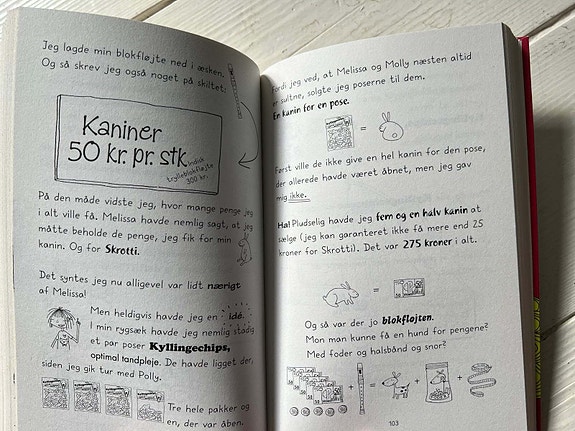 Jeg lagde min blokfløjte ned i æsken.
Og så skrev jeg også noget på skiltet:
Kaniner
50 kr. pr. stk
Indisk
trylleblokfløjte
300 kr.
På den måde vidste jeg, hvor mange penge jeg
i alt ville få. Melissa havde nemlig sagt, at jeg
måtte beholde de penge, jeg fik for min
kanin. Og for Skrotti.
Det syntes jeg nu alligevel var lidt nærigt
af Melissa!
Men heldigvis havde jeg en idé.
I min rygsæk havde jeg nemlig stadig
et par poser Kyllingechips,
optimal tandpleje. De havde ligget der,
siden jeg gik tur med Polly.
Tre hele pakker og
en, der var åben.
Fordi jeg ved, at Melissa og Molly næsten altid
er sultne, solgte jeg poserne til dem.
En kanin for en pose.
=
Først ville de ikke give en hel kanin for den pose,
der allerede havde været åbnet, men jeg gav
mig ikke.
Ha! Pludselig havde jeg fem og en halv kanin at
sælge (jeg kan garanteret ikke få mere end 25
kroner for Skrotti). Det var 275 kroner i alt.
=
50
Og så var der jo blokfløjten.
Mon man kunne få en hund for pengene?
Med foder og halsbånd og snor?
+ = + +
103